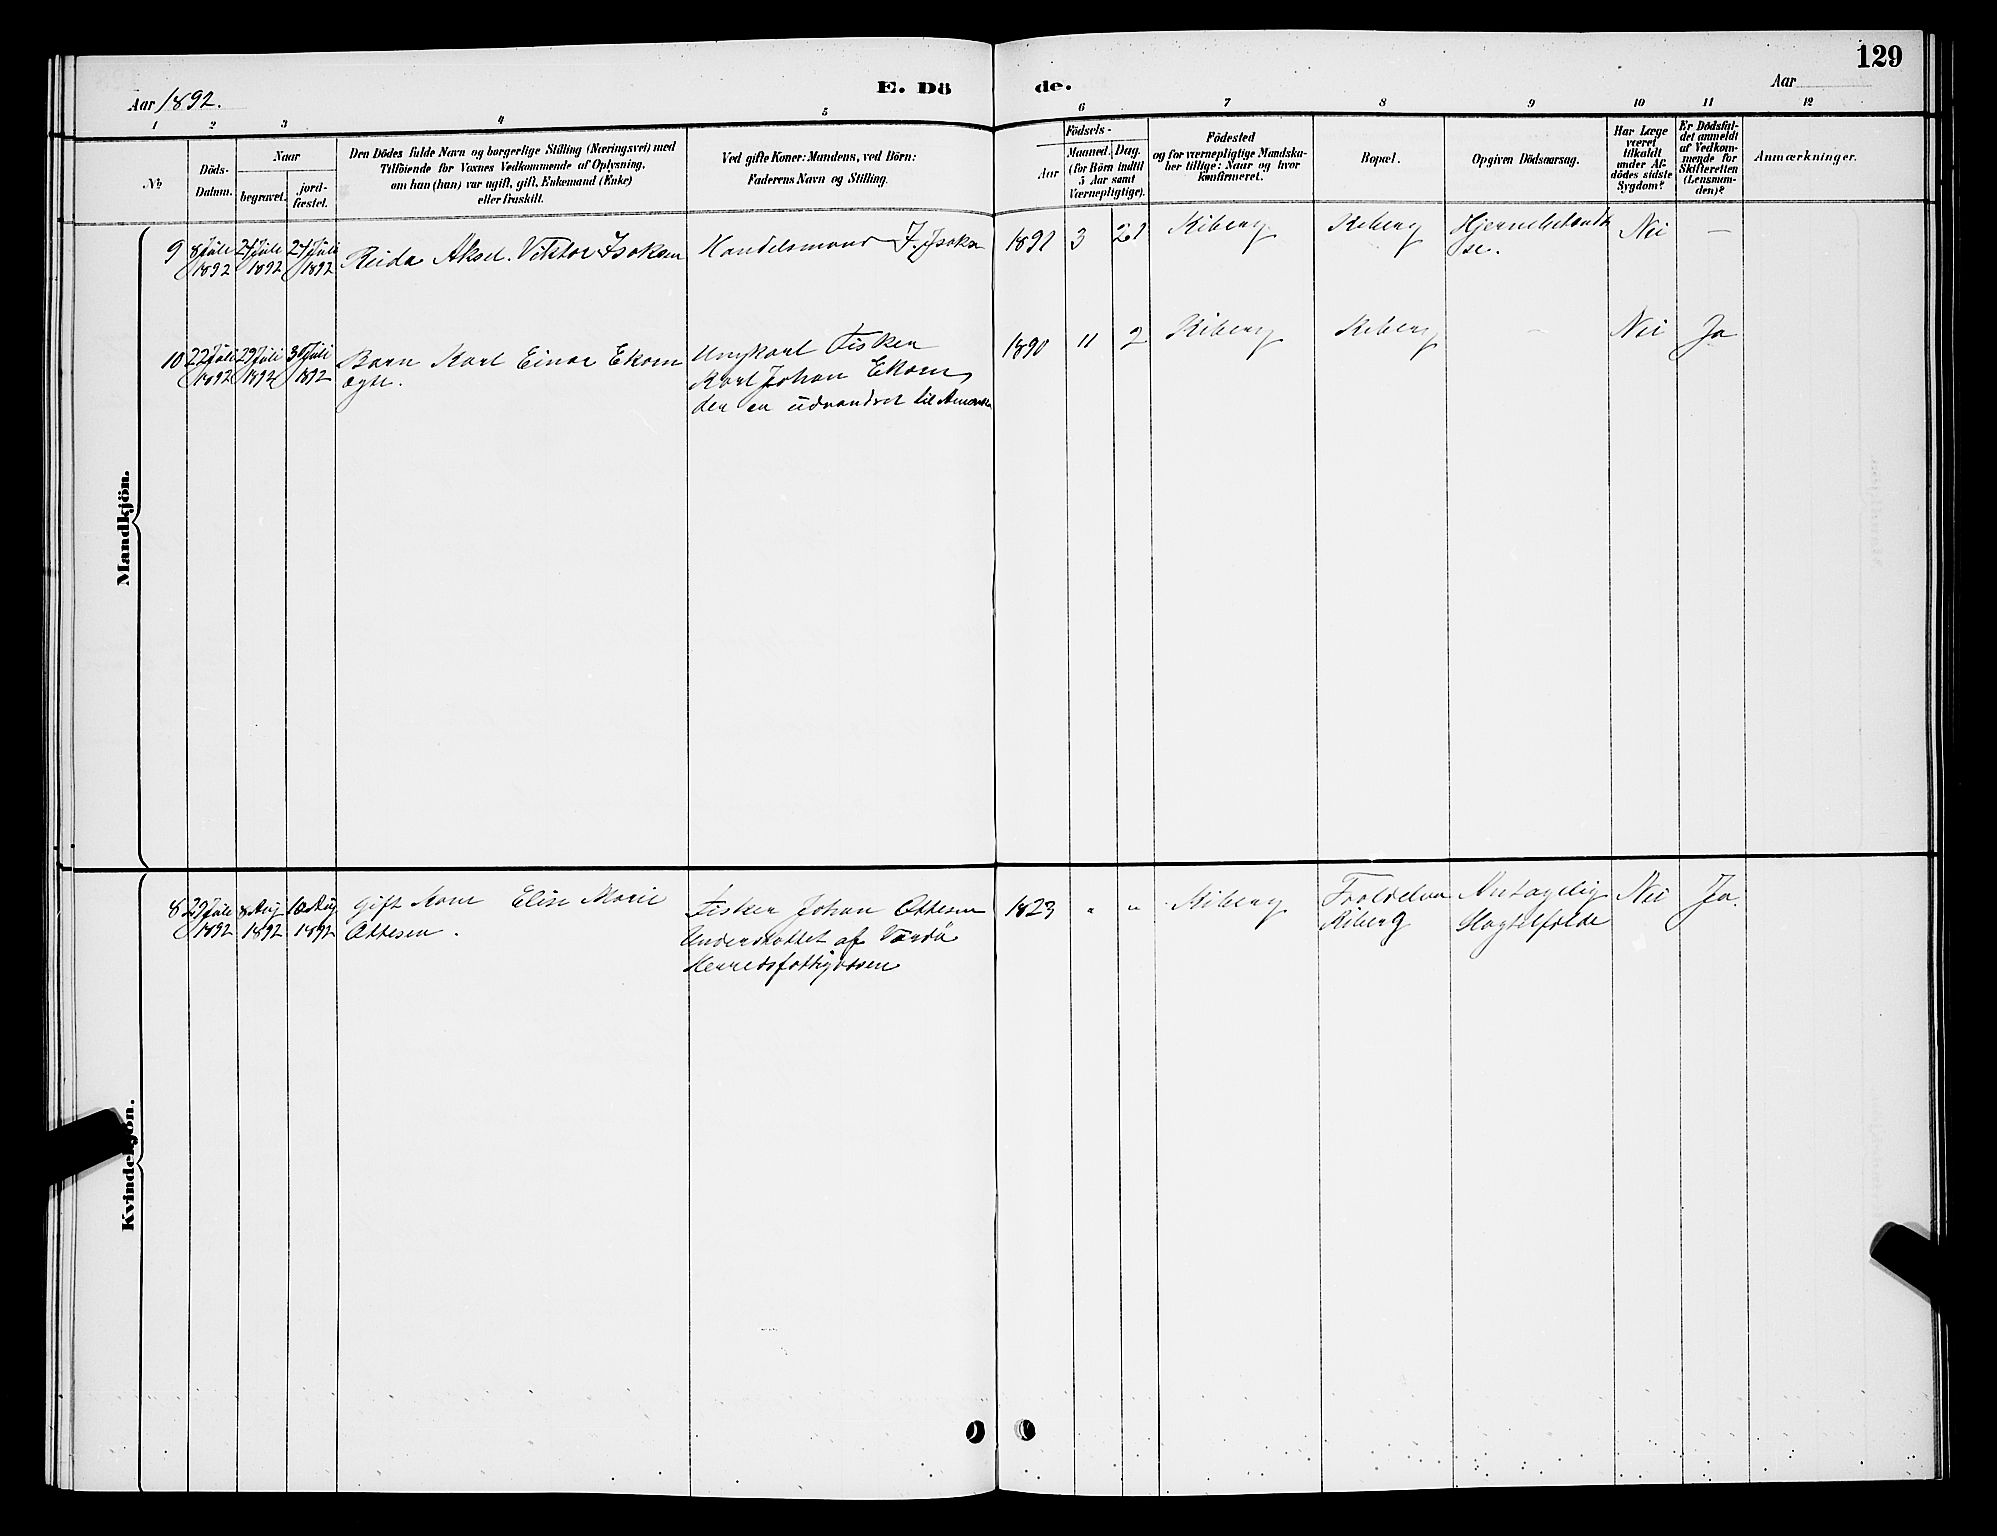 129
Aar 1892.
E. Dö
de.
Aar
1 2 3 4 5 6 7 8 9 10 11 12
№
Döds-
Datum.
Naar
begravet.
jord-
fæstet.
Den Dödes fulde Navn og borgerlige Stilling (Næringsvei) med
Tilföiende for Voxnes Vedkommende af Oplysning.
om han (hun) var ugift, gift, Enkemand (Enke)
eller fraskilt.
Ved gifte Koner: Mandens, ved Börn:
Faderens Navn og Stilling.
Födsels-
Aar
Maaned.
Dag.
(for Börn indtil
5 Aar samt
Værnepligtige).
Födested
og for værnepligtige Mandska-
ber tillige: Naar og hvor
konfirmeret.
Bopæl.
Opgiven Dödsaarsag.
Har Læge
været
tilkaldt
under Af-
dödes sidste
Sygdom?
Er Dödsfal-
det anmeldt
af Vedkom-
mende for
Skifteretten
(Lensman-
den)?
Anmærkninger.
Mandkjön.
9
8 Juli
1892
27 Juli
1892
27 Juli
1892
Reidar Aksel Viktor Isaksen
Handelsmand J. Isaksen
1891 3 21
Kiberg
Kiberg
Hjernebetændel
se.
Nei
—
10
22 Juli
1892
29 Juli
1892
30 Juli
1892
Barn Karl Einar Ekom
ægte.
Ungkarl Fisker
Karl Johan Ekom,
der er udvandret til Amerika
1890 11 2
Kiberg
Kiberg
—
Nei
Ja
Kvindekjön.
8
29 Juli
1892
8 Aug
1892
10 Aug
1892
Gift Kone Elise Marie
Ottesen.
Fisker Johan Ottesen
Understøttet af Vardø
Herredsfattigvæsen
1823 " "
Kiberg
Kiberg
Antagelig
Slagtilfælde
Nei
Ja.